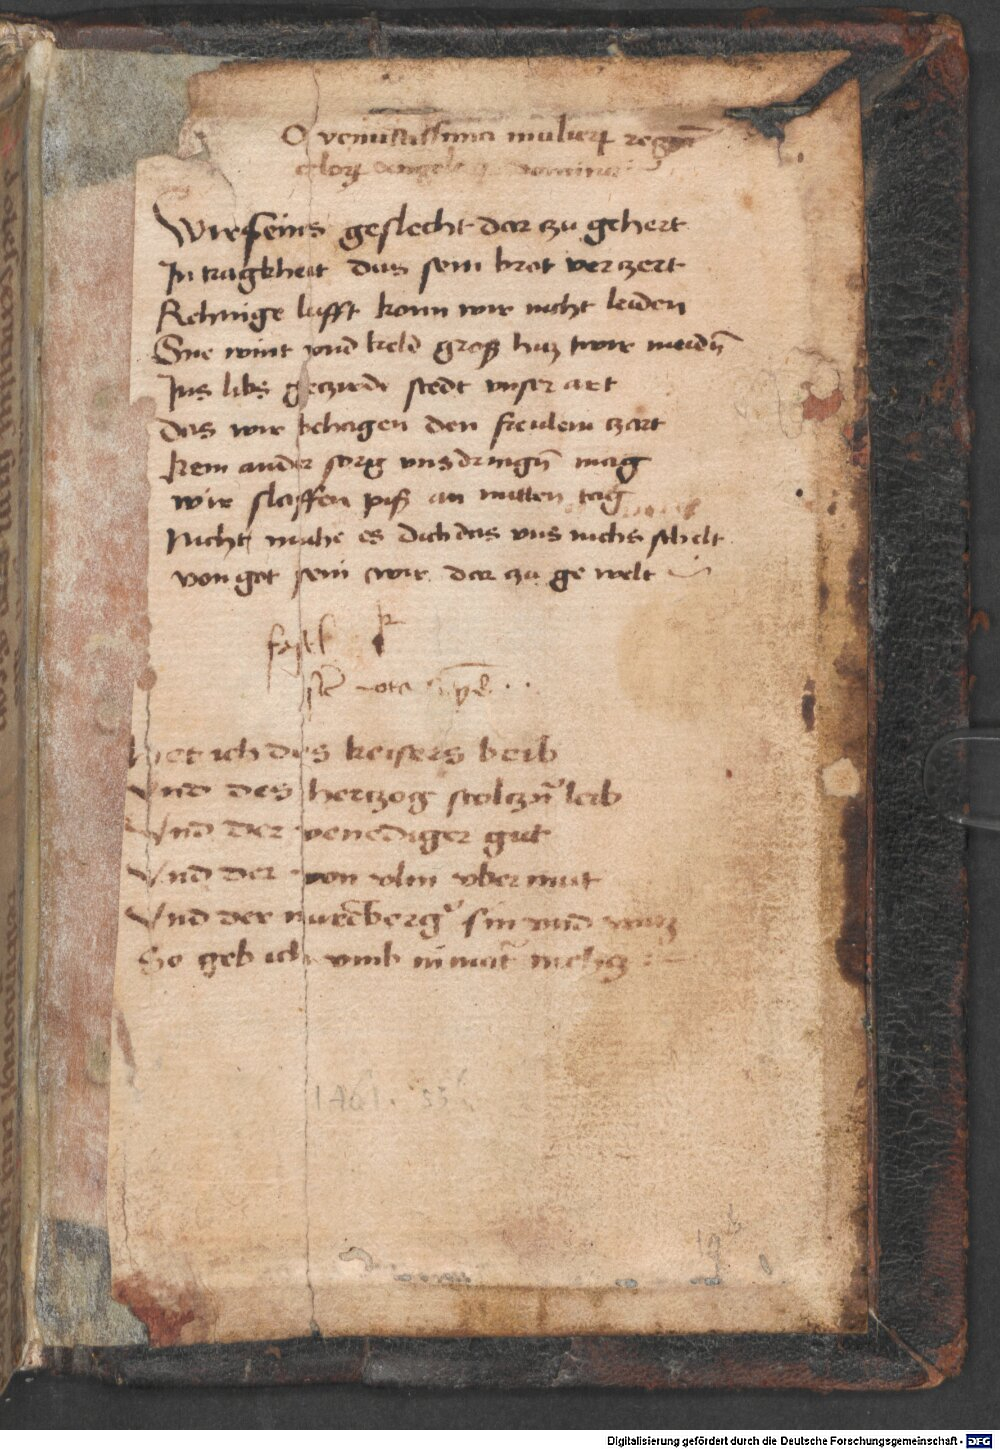 O venustissima mulierum regina
celorum angelorum domina
Wir seins geslecht dar zu gehert
In tragkheit das sein brot verczert
Rehnige lufft konn wir nicht leiden
Sne wint vnd keld groß hiz wir meiden
Ins libs geczirde stedt vnser art
das wir behagen den freulein zart
kein ander sorg vns dringen mag
wir slaffen piß an mitten tag
Nicht muhe es dich das vns nichs schelt
von got sein wir dar zu ge welt
Het ich des keisers beib
Vnd des hertzog stolczen leib
Vnd der venediger gut
Vnd der von vlm vbermut
Vnd der nurenberger sin vnd witz
So geb ich vmb
Digitalisierung gefördert durch die Deutsche Forschungsgemeinschaft - DFG